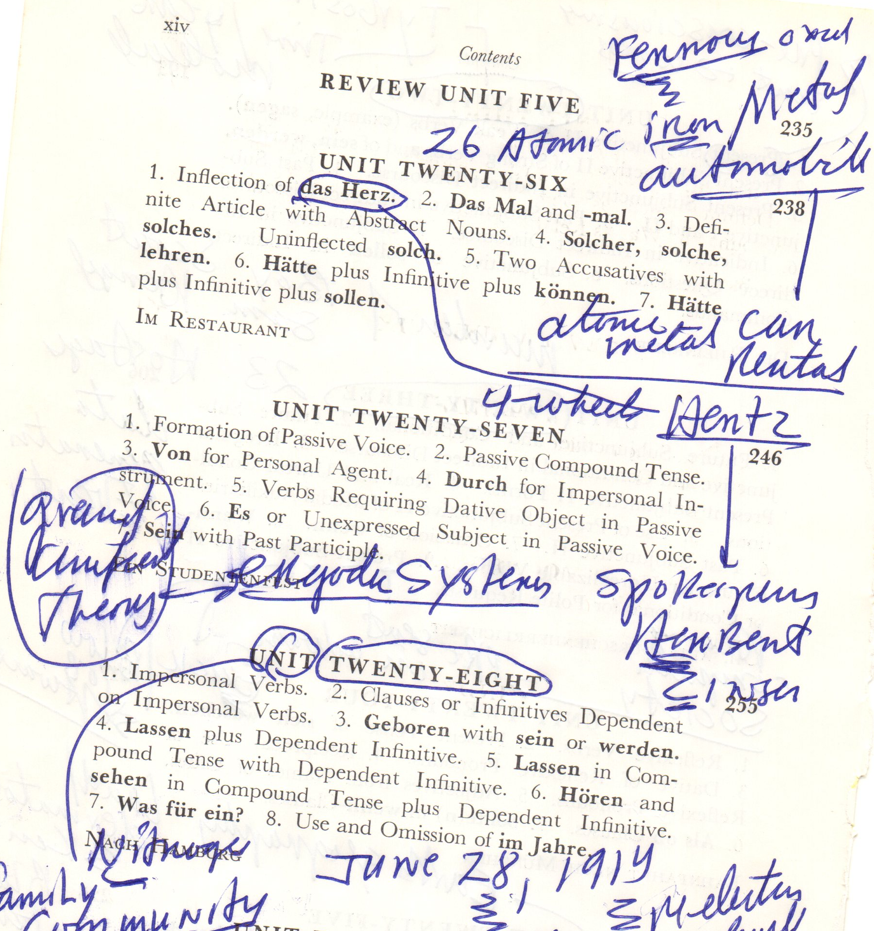 xiv
Contents
Ferrous
REVIEW UNIT FIVE
Metal
235
26 Atomic iron
automobile
UNIT TWENTY-SIX
238
1. Inflection of das Herz. 2. Das Mal and -mal. 3. Defi-
nite Article with Abstract Nouns. 4. Solcher, solche,
solches. Uninflected solch. 5. Two Accusatives with
lehren. 6. Hätte plus Infinitive plus können. 7. Hätte
plus Infinitive plus sollen.
atomic
metal
Car
Rental
IM RESTAURANT
4-wheels
Hertz
UNIT TWENTY-SEVEN
246
1. Formation of Passive Voice. 2. Passive Compound Tense.
3. Von for Personal Agent. 4. Durch for Impersonal In-
strument. 5. Verbs Requiring Dative Object in Passive
Voice. 6. Es or Unexpressed Subject in Passive Voice.
7. Sein with Past Participle.
EIN STUDENTENFEST
Grand
Unified
Theory
ergodic Systems
Herbert
UNIT TWENTY-EIGHT
255
1. Impersonal Verbs. 2. Clauses or Infinitives Dependent
on Impersonal Verbs. 3. Geboren with sein or werden.
4. Lassen plus Dependent Infinitive. 5. Lassen in Com-
pound Tense with Dependent Infinitive. 6. Hören and
sehen in Compound Tense plus Dependent Infinitive.
7. Was für ein? 8. Use and Omission of im Jahre.
NACH HAMBURG
June 28, 1914
Family
Community